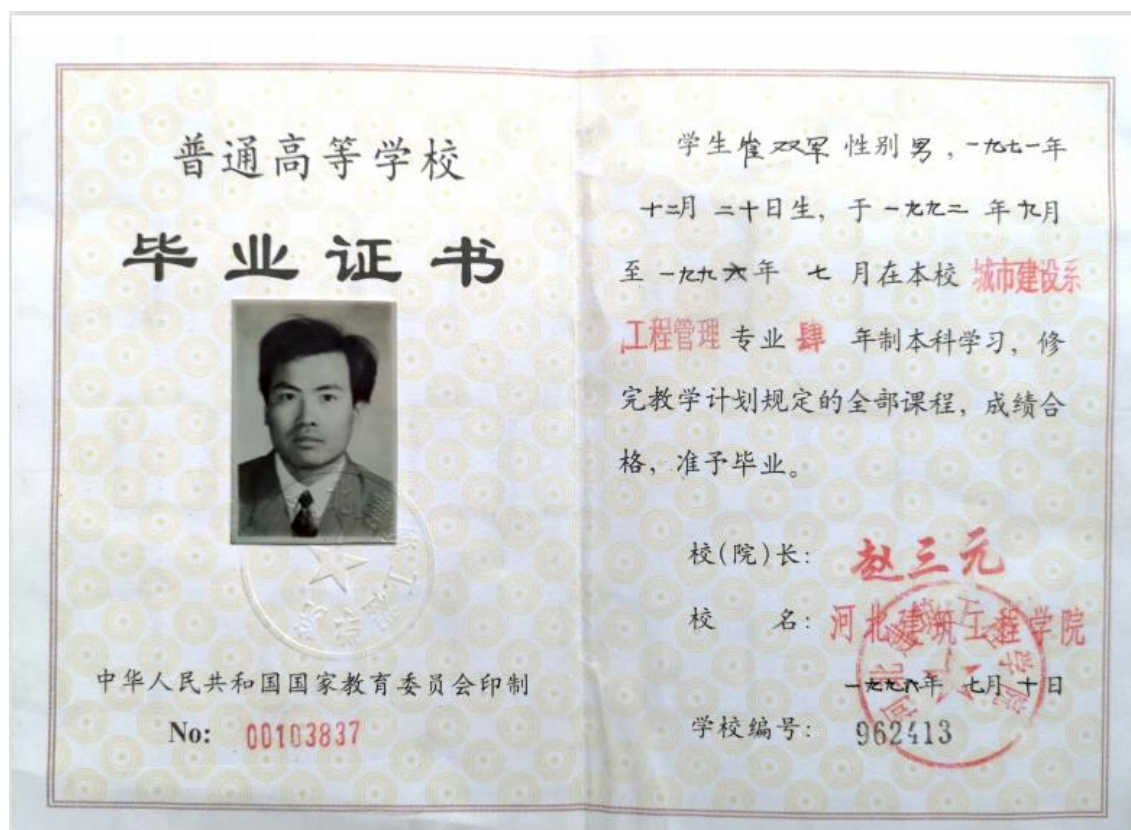 普通高等学校
毕业证书
中华人民共和国国家教育委员会印制
No: 00103837
学生崔双军性别男，一九七一年
十二月二十日生，于一九九二年九月
至一九九六年七月在本校城市建设系
工程管理专业肆年制本科学习，修
完教学计划规定的全部课程，成绩合
格，准予毕业。
校(院)长：赵三元
校名：河北建筑工程学院
一九九六年七月十日
学校编号：962413
河北建筑工程学院